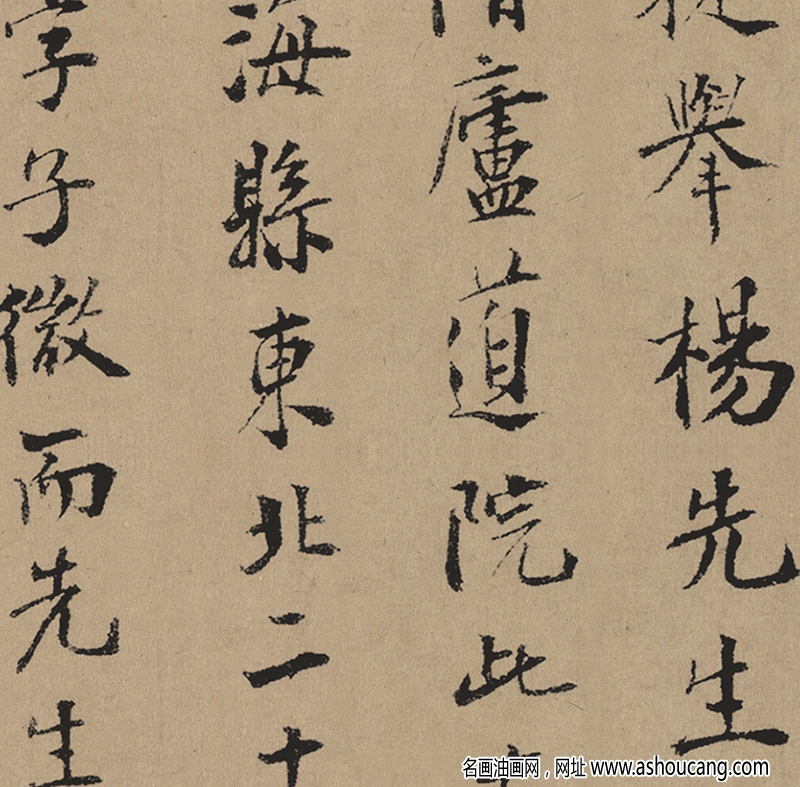 舉楊先生
廬道院此
海縣東北二十
字子微而先生
名画油画网，网址 www.ashoucang.com